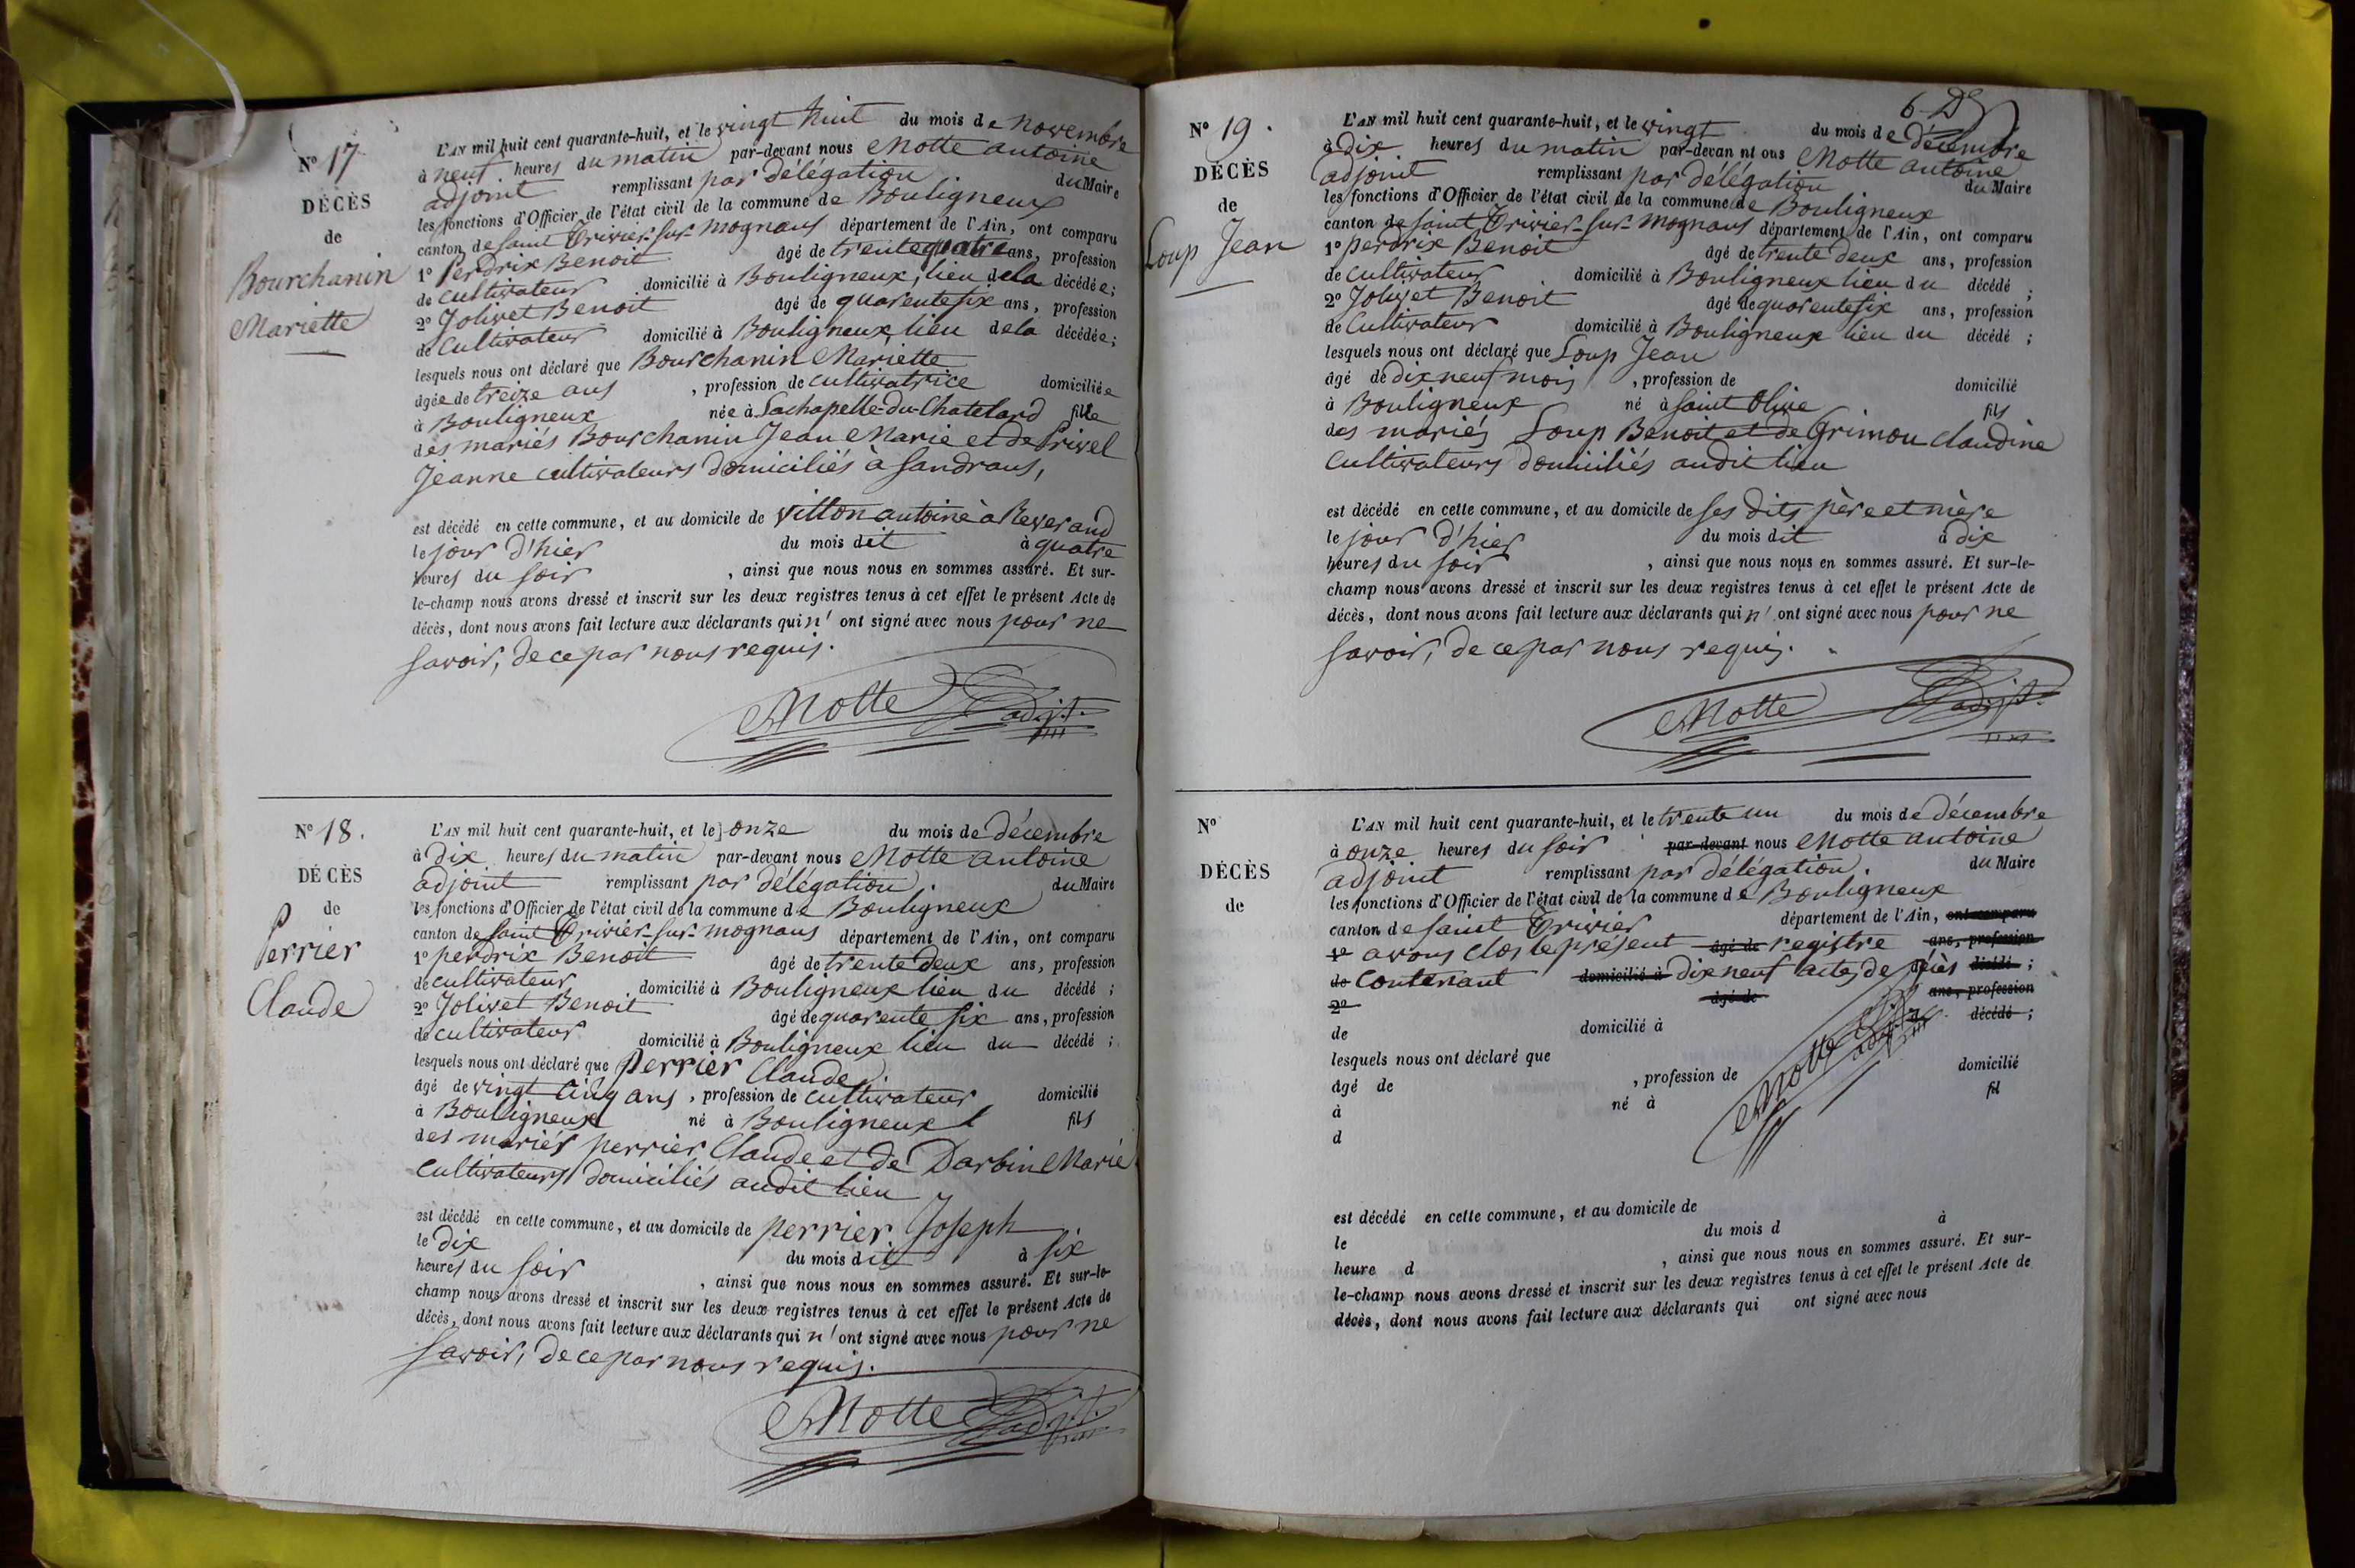 N° 17
DÉCÈS
de
Bourchanin
Mariette
L'AN mil huit cent quarante-huit, et le vingt huit du mois de novembre
à neuf heures du matin par-devant nous Motte antoine
adjoint remplissant par délégation du Maire
les fonctions d'Officier de l'état civil de la commune de Bouligneux
canton de saint Trivier-sur-mognans département de l'Ain, ont comparu
1° Perdrix Benoit âgé de trente quatre ans, profession
de cultivateur domicilié à Bouligneux, lieu de la décédée;
2° Jolivet Benoit âgé de quarente six ans, profession
de cultivateur domicilié à Bouligneux, lieu de la décédée;
lesquels nous ont déclaré que Bourchanin Mariette
âgée de treize ans , profession de cultivatrice domiciliée
à Bouligneux née à Lachapelle-du-Chatelard fille
des mariés Bourchanin Jean Marie et de Privel
Jeanne cultivateurs domiciliés à Sandrans,
est décédé en cette commune, et au domicile de Vitton antoine à Reverand
le jour d'hier du mois dit à quatre
heures du soir , ainsi que nous nous en sommes assuré. Et sur-
le-champ nous avons dressé et inscrit sur les deux registres tenus à cet effet le présent Acte de
décès, dont nous avons fait lecture aux déclarants qui n' ont signé avec nous pour ne
savoir, de ce par nous requis.
Motte adjt.
N° 18.
DÉCÈS
de
Perrier
Claude
L'AN mil huit cent quarante-huit, et le onze du mois de décembre
à dix heures du matin par-devant nous Motte antoine
adjoint remplissant par délégation. du Maire
les fonctions d'Officier de l'état civil de la commune de Bouligneux
canton de saint Trivier-sur-mognans département de l'Ain, ont comparu
1° perdrix Benoit âgé de trente deux ans, profession
de cultivateur domicilié à Bouligneux lieu du décédé ;
2° Jolivet Benoit âgé de quarente six ans, profession
de cultivateur domicilié à Bouligneux lieu du décédé ;
lesquels nous ont déclaré que Perrier Claude
âgé de vingt cinq ans , profession de cultivateur domicilié
à Bouligneux né à Bouligneux fils
des mariés perrier Claude et de Darbin Marie
cultivateurs domiciliés audit lieu
est décédé en cette commune, et au domicile de perrier Joseph
le dix du mois dit à six
heures du soir , ainsi que nous nous en sommes assuré. Et sur-le-
champ nous avons dressé et inscrit sur les deux registres tenus à cet effet le présent Acte de
décès, dont nous avons fait lecture aux déclarants qui n' ont signé avec nous pour ne
savoir, de ce par nous requis.
Motte adjt.
N° 19.
DÉCÈS
de
Loup Jean
L'AN mil huit cent quarante-huit, et le vingt du mois de décembre
à dix heures du matin par-devan nt ous Motte antoine
adjoint remplissant par délégation du Maire
les fonctions d'Officier de l'état civil de la commune de Bouligneux
canton de saint Trivier-sur-mognans département de l'Ain, ont comparu
1° perdrix Benoit âgé de trente deux ans, profession
de cultivateur domicilié à Bouligneux lieu du décédé ;
2° Jolivet Benoit âgé de quarente six ans, profession
de cultivateur domicilié à Bouligneux lieu du décédé ;
lesquels nous ont déclaré que Loup Jean
âgé de dix neuf mois , profession de domicilié
à Bouligneux né à saint Olive fils
des mariés Loup Benoit et de Grimou Claudine
cultivateurs domiciliés audit lieu
est décédé en cette commune, et au domicile de ses dits père et mère
le jour d'hier du mois dit à dix
heures du soir , ainsi que nous nous en sommes assuré. Et sur-le-
champ nous avons dressé et inscrit sur les deux registres tenus à cet effet le présent Acte de
décès, dont nous avons fait lecture aux déclarants qui n' ont signé avec nous pour ne
savoir, de ce par nous requis.
Motte adjt.
N°
DÉCÈS
de
L'AN mil huit cent quarante-huit, et le trente un du mois de décembre
à onze heures du soir par-devant nous Motte antoine
adjoint remplissant par délégation. du Maire
les fonctions d'Officier de l'état civil de la commune de Bouligneux
canton de saint Trivier département de l'Ain, ont comparu
1° avons clos le présent âgé de registre ans, profession
de contenant domicilié à dix neuf actes de décès décédé ;
2° âgé de ans, profession
de domicilié à décédé ;
lesquels nous ont déclaré que
âgé de , profession de domicilié
à né à fil
d
Motte adjt.
est décédé en cette commune, et au domicile de
le du mois d à
heure d , ainsi que nous nous en sommes assuré. Et sur-
le-champ nous avons dressé et inscrit sur les deux registres tenus à cet effet le présent Acte de
décès, dont nous avons fait lecture aux déclarants qui ont signé avec nous